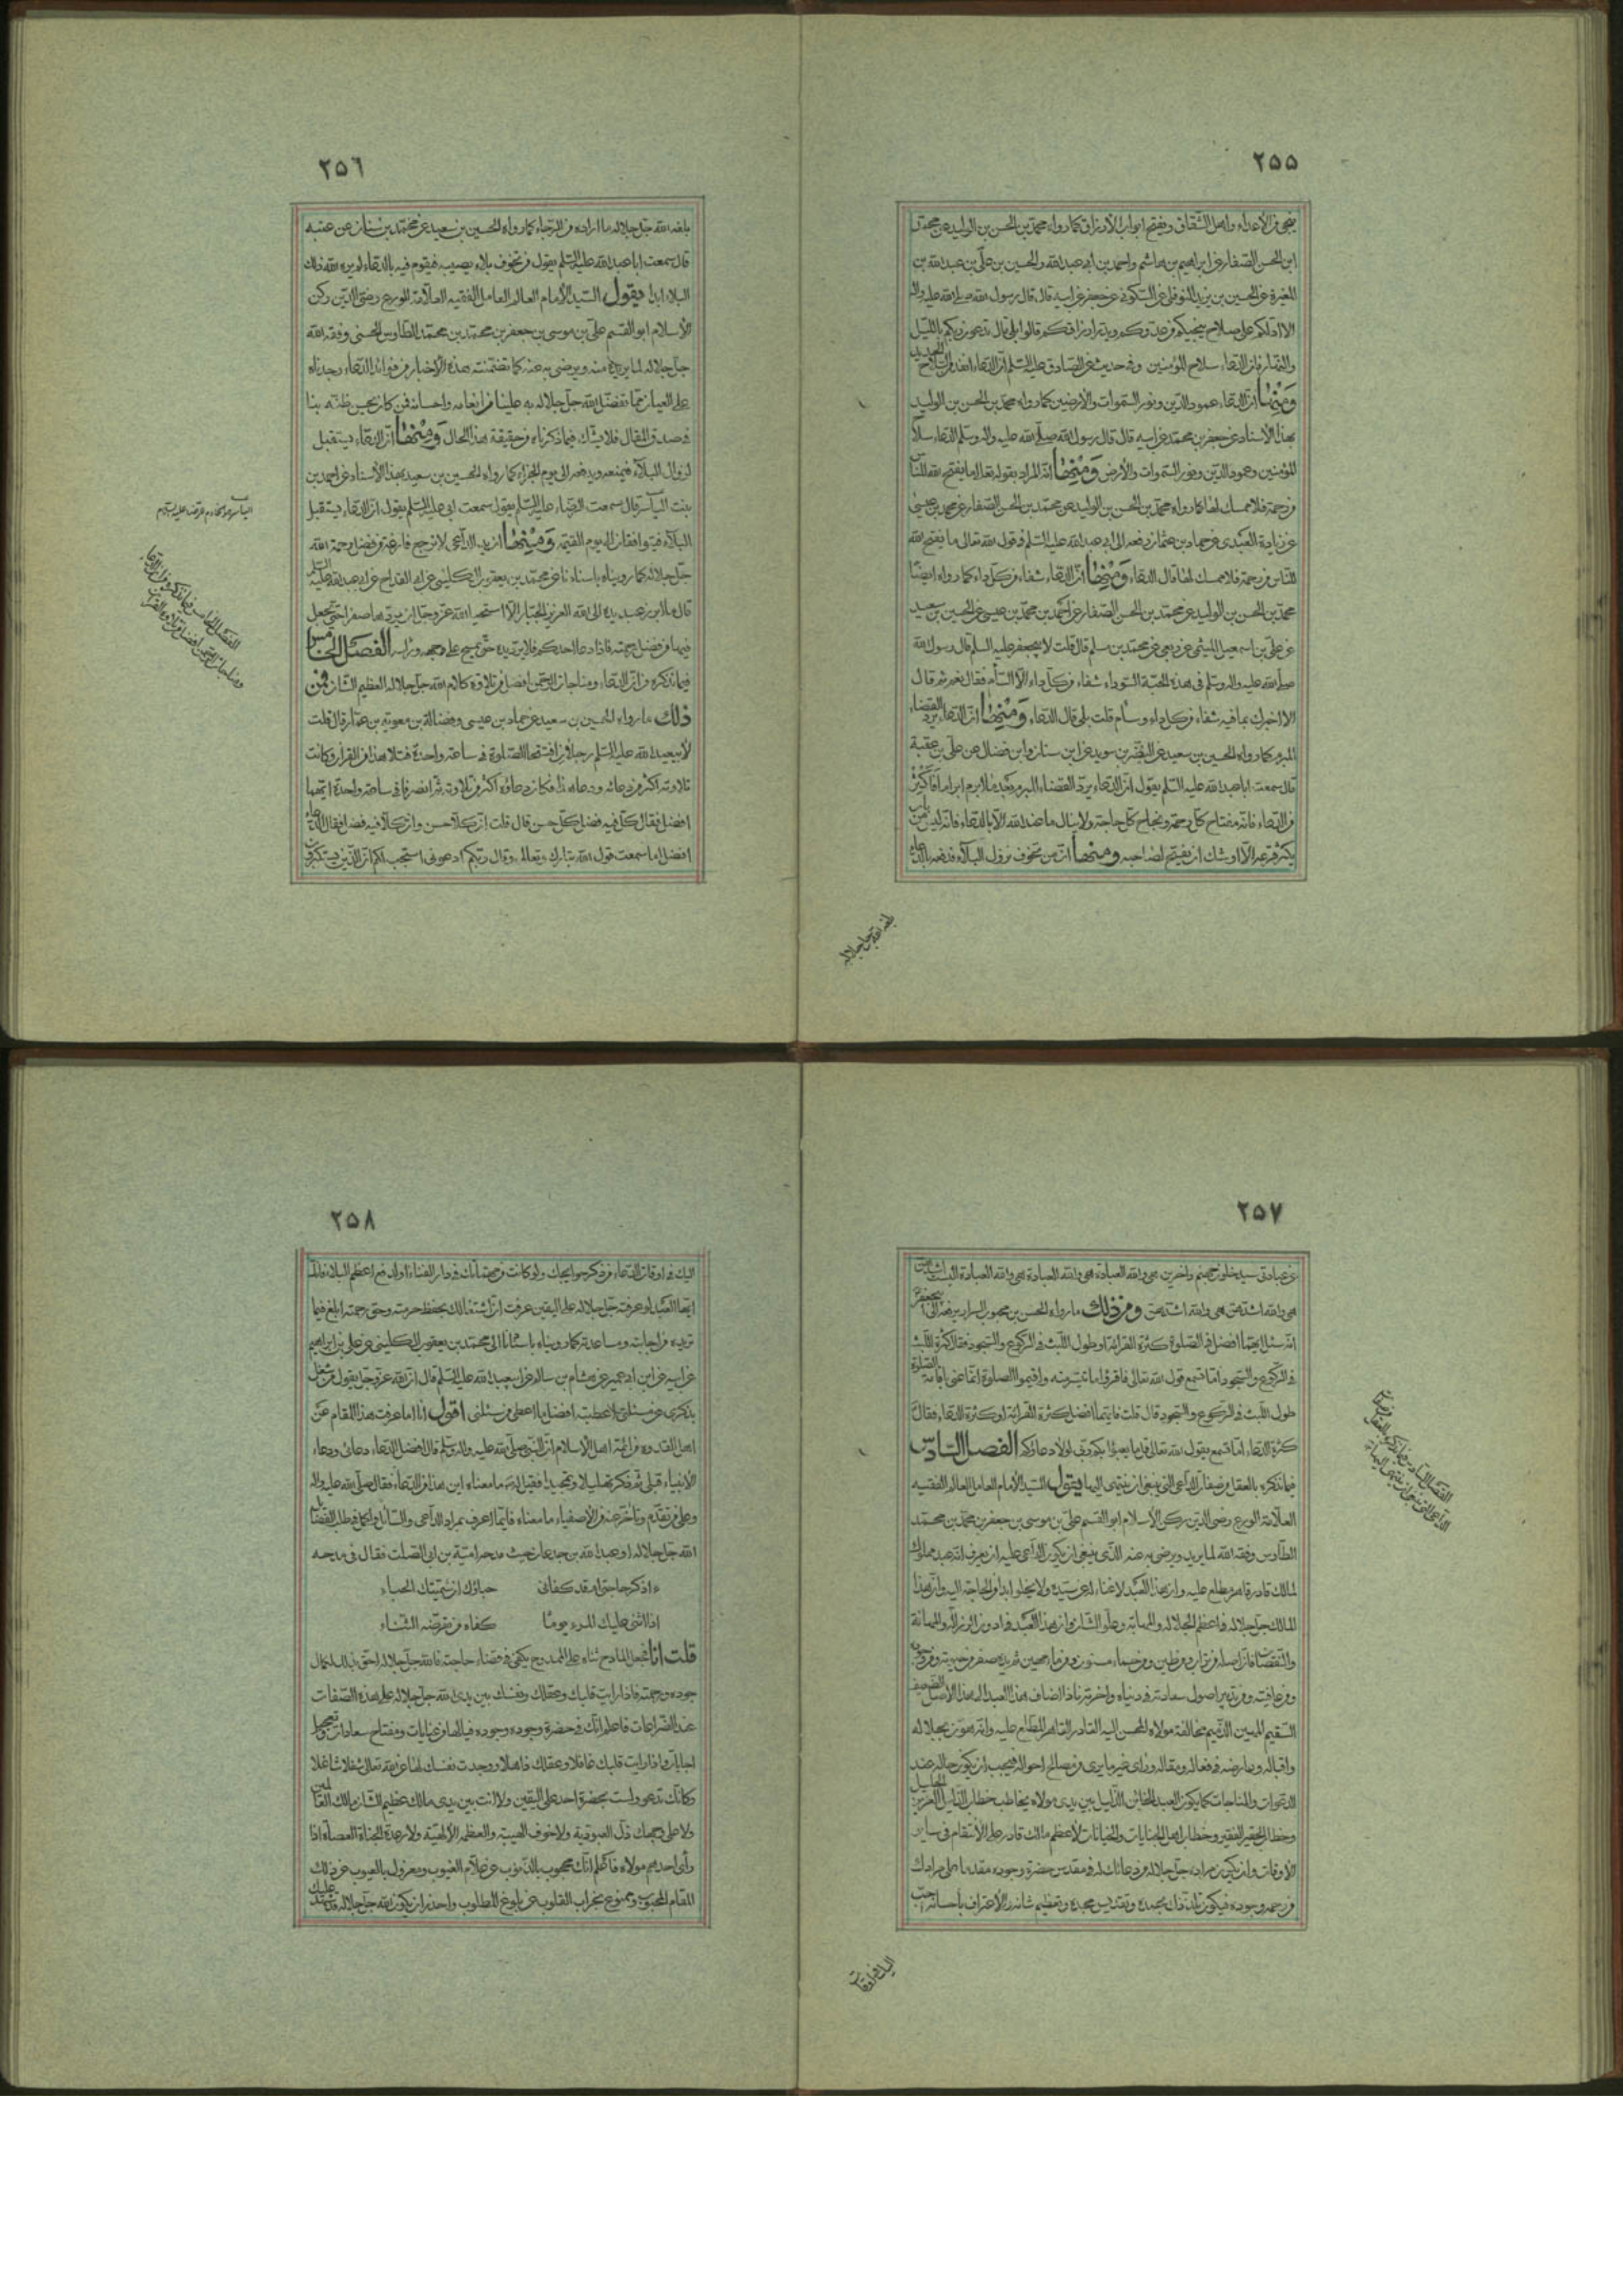 ٢٥٥
ينجى من الأعداء واهل الشقاق ويفتح ابواب الأرزاق كما رواه محمد بن الحسن بن الوليد عن محمد
ابن الحسن الصفار عن ابراهيم بن هاشم واحمد بن ابى عبد الله والحسين بن على بن عبد الله بن
المغيرة عن الحسين بن يزيد النوفلى عن السكونى عن جعفر عن ابيه قال قال رسول الله صلى الله عليه واله
الا ادلكم على سلاح ينجيكم من عدوكم ويدر ارزاقكم قالوا بلى قال تدعون ربكم بالليل
والنهار فان الدعاء سلاح المؤمنين وفى حديث عن الصادق عليه السلم ان الدعاء انفذ من السلاح الحديد
ومنها ان الدعاء عمود الدين ونور السموات والأرضين كما رواه محمد بن الحسن بن الوليد
بهذا الأسناد عن جعفر بن محمد عن ابيه قال قال رسول الله صلى الله عليه واله وسلم الدعاء سلاح
المؤمنين وعمود الدين ونور السموات والأرض ومنها انه المراد بقوله تعالى ما يفتح الله للناس
من رحمة فلا ممسك لها كما رواه محمد بن الحسن بن الوليد عن محمد بن الحسن الصفار عن محمد بن عيسى
عن زيادة العبدى عن حماد بن عثمان رفعه الى ابى عبد الله عليه السلم فى قول الله تعالى ما يفتح الله
للناس من رحمة فلا ممسك لها قال الدعاء ومنها ان الدعاء شفاء من كل داء كما رواه ايضا
محمد بن الحسن بن الوليد عن محمد بن الحسن الصفار عن احمد بن محمد بن عيسى عن الحسين بن سعيد
عن على بن اسمعيل الميثمى عن ربعى عن محمد بن مسلم قال قلت لابى جعفر عليه السلم قال رسول الله
صلى الله عليه واله وسلم فى هذه الحبة السوداء شفاء من كل داء الا السام فقال نعم ثم قال
الا اخبرك بما فيه شفاء من كل داء وسام قلت بلى قال الدعاء ومنها ان الدعاء يرد القضاء
المبرم كما رواه الحسين بن سعيد عن النضر بن سويد عن ابن سنان وابن فضال عن على بن عقبة
قال سمعت ابا عبد الله عليه السلم يقول ان الدعاء يرد القضاء المبرم بعد ما ابرم ابراما فاكثر
من الدعاء فانه مفتاح كل رحمة ونجاح كل حاجة ولا ينال ما عند الله الا بالدعاء فانه ليس من باب
يكثر قرعه الا اوشك ان يفتح لصاحبه ومنها ان من تخوف نزول البلاء فدفعه بالدعاء
بلغه الله جل جلاله
٢٥٦
بلغه الله جل جلاله ما اراده من الرجاء كما رواه الحسين بن سعيد عن محمد بن سنان عن عنبسه
قال سمعت ابا عبد الله عليه السلم يقول من تخوف بلاء يصيبه فيقوم فيه بالدعاء لم يره الله ذلك
البلاء ابدا يقول السيد الأمام العالم العامل الفقيه العلامة الورع رضى الدين ركن
الأسلام ابو القسم على بن موسى بن جعفر بن محمد بن محمد الطاوس الحسنى وفقه الله
جل جلاله لما يريده منه ويرضى به عنه كما تضمنته هذه الأخبار من فوائد الدعاء وجدناه
على العيان مما تفضل الله جل جلاله به علينا من انعامه واحسانه فمن كان يحسن ظنه بنا
فى صدق المقال فلا يشك فيما ذكرناه من حقيقة هذا الحال ومنها ان الدعاء يستقبل
نزول البلاء فيمنعه ويدفعه الى يوم الجزاء كما رواه الحسين بن سعيد بهذا الأسناد عن احمد بن
بنت الياس قال سمعت الرضاء عليه السلم يقول سمعت ابى عليه السلم يقول ان الدعاء يستقبل
البلاء فيتوافقان الى يوم القيمه ومنها ان يد الداعى لا ترجع فارغة من فضل رحمة الله
جل جلاله كما رويناه باسنادنا عن محمد بن يعقوب الكلينى عن ابى القداح عن ابى عبد الله عليه السلم
قال ما ابرز عبد يده الى الله العزيز الجبار الا استحيا الله عز وجل ان يردها صفرا حتى يجعل
فيها من فضل رحمته فاذا دعا احدكم فلا يرد يده حتى يمسح على وجهه وراسه الفصل الخامس
فيما نذكره من ان الدعاء ومناجات الرحمن افضل من تلاوة كلام الله جل جلاله العظيم الشان فمن
ذلك ما رواه الحسين بن سعيد عن حماد بن عيسى وفضالة بن معوية بن عمار قال قلت
لأبى عبد الله عليه السلم رجلان افتتحا الصلوة فى ساعة واحدة فتلا هذا من القرآن وكانت
تلاوته اكثر من دعائه ودعا هذا فكان دعاؤه اكثر من تلاوته ثم انصرفا فى ساعة واحدة ايهما
افضل فقال كل فيه فضل كل حسن قال قلت ان كلا حسن وان كلا فيه فضل فقال الدعاء
افضل اما سمعت قول الله تبارك وتعالى وقال ربكم ادعونى استجب لكم ان الذين يستكبرون
الفصل الخامس فيما نذكره من ان الدعاء
ومناجات الرحمن افضل من تلاوة القرآن
٢٥٧
عن عبادتى سيدخلون جهنم داخرين هى والله العبادة هى والله العبادة هى والله العبادة اليست اشدهن
هى والله اشدهن هى والله اشدهن ومن ذلك ما رواه الحسن بن محبوب السراد يرفعه الى ابى جعفر
انه سئل ايهما افضل فى الصلوة كثرة القرائة او طول اللبث فى الركوع والسجود فقال كثرة اللبث
فى الركوع والسجود اما تسمع قول الله تعالى فاقرؤا ما تيسر منه واقيموا الصلوة انما عنى باقامة الصلوة
طول اللبث فى الركوع والسجود قال قلت فايهما افضل كثرة القرائة او كثرة الدعاء فقال
كثرة الدعاء اما تسمع يقول الله تعالى قل ما يعبؤا بكم ربى لولا دعاؤكم الفصل السادس
فيما نذكره بالعقل من صفات الداعى التى ينبغى ان ينتهى اليها يقول السيد الأمام العامل العالم الفقيه
العلامة الورع رضى الدين ركن الأسلام ابو القسم على بن موسى بن جعفر بن محمد بن محمد
الطاوس وفقه الله لما يريد ويرضى به عنه الذى ينبغى ان يكون الداعى عليه ان يعرف انه عبد مملوك
لمالك قادر قاهر مطلع عليه وان هذا العبد لا غناء له عن سيده ولا يخلو ابدا من الحاجة اليه وان هذا
المالك جل جلاله فى اعظم الجلاله والمهابه وعلو الشان وان هذا العبد فى ادون الرذالة والمهانة
والنقصان فان اصله من تراب ومن طين ومن حماء مسنون ومن ماء مهين
ومن عافيته ومن تدبير اصول سعادته فى دنياه واخرته فاذا اضاف هذا العبد الى هذا الأصل الضعيف
السقيم المهين الذميم مخالفة مولاه المحسن اليه القادر القاهر المطلع عليه وانه يهون بجلاله
واقباله وعارضه فى فعاله ومقاله وراى غير ما يرى من مصالح احواله فيجب ان يكون حاله عند
الدعوات والمناجات كما يكون العبد الخائن الذليل بين يدى مولاه يخاطب خطاب الذليل العزيز الجليل
وخطاب الحقير الفقير وخطاب اهل الجنايات والخيانات لأعظم مالك قادر على الأنتقام فى ساير
الأوقات وان يكون مراده جل جلاله من دعائك له فى مقدس حضرة وجوده مقدما على مرادك
من رحمه وجوده فيكون تلذذك بحمده وتقديس مجده وتعظيم شانه والأعتراف باحسانه احب
اليك فى اوقات
الفصل السادس فيما نذكره بالعقل من صفات
الداعى التى ينبغى ان ينتهى اليها
٢٥٨
اليك فى اوقات الدعاء من ذكر حوايجك ولو كانت من مهماتك فى دار الفناء او لدفع اعظم البلاء فانك
ايها العبد لو عرفته جل جلاله على اليقين عرفت ان اشتغالك بحفظ حرمته وحق رحمته ابلغ فيما
تريده من اجابته ومساعدته كما رويناه باسنادنا الى محمد بن يعقوب الكلينى عن على بن ابراهيم
عن ابيه عن ابن ابى عمير عن هشام بن سالم عن ابى عبد الله عليه السلم قال ان الله عز وجل يقول من شغل
بذكرى عن مسئلتى اعطيته افضل ما اعطى من سئلنى اقول انا اما عرفت هذا المقام عن
اهل القدوه من ائمة اهل الأسلام ان النبى صلى الله عليه واله وسلم قال افضل الدعاء دعائى ودعاء
الأنبياء قبلى ثم ذكر تهليلا وتمجيدا فقيل له ما معناه اين هذا من الدعاء فقال صلى الله عليه واله
وعلى من تقدم وتأخر عنه من الأصفياء ما معناه فايما اعرف بمراد الداعى والسائل واكمل فى طلب الفضائل
الله جل جلاله او عبد الله بن جدعان حيث مدحه امية بن ابى الصلت فقال فى مدحه
ءاذكر حاجتى ام قد كفانى حباؤك ان شيمتك الحباء
اذا اثنى عليك المرء يوما كفاه من تعرضه الثناء
قلت انا فجعل المادح ثناه على الممدوح يكفى فى قضاء حاجته فالله جل جلاله احق بذلك لكمال
جوده ورحمته فاذا رايت قلبك وعقلك ونفسك بين يدى الله جل جلاله على هذه الصفات
عند الضراعات فاعلم انك فى حضرة وجوده وجوده فيالها من عنايات ومفتاح سعادات وتعجيل
اجابات واذا رايت قلبك غافلا وعقلك ذاهلا ووجدت نفسك لها عن الله تعالى شغلا شاغلا
وكانك تدعو ولست بحضرة احد على اليقين ولا انت بين يدى مالك عظيم الشان مالك العالمين
ولا على وجهك ذل العبودية ولا خوف الهيبة والعظمه الألهية ولا رعدة الجناة العصاة اذا
رأى احدهم مولاه فاعلم انك محجوب بالذنوب عن علام الغيوب ومعزول بالعيوب عن ذلك
المقام المحبوب وممنوع بخراب القلوب عن بلوغ المطلوب واحذر ان يكون الله جل جلاله قد شهد عليك